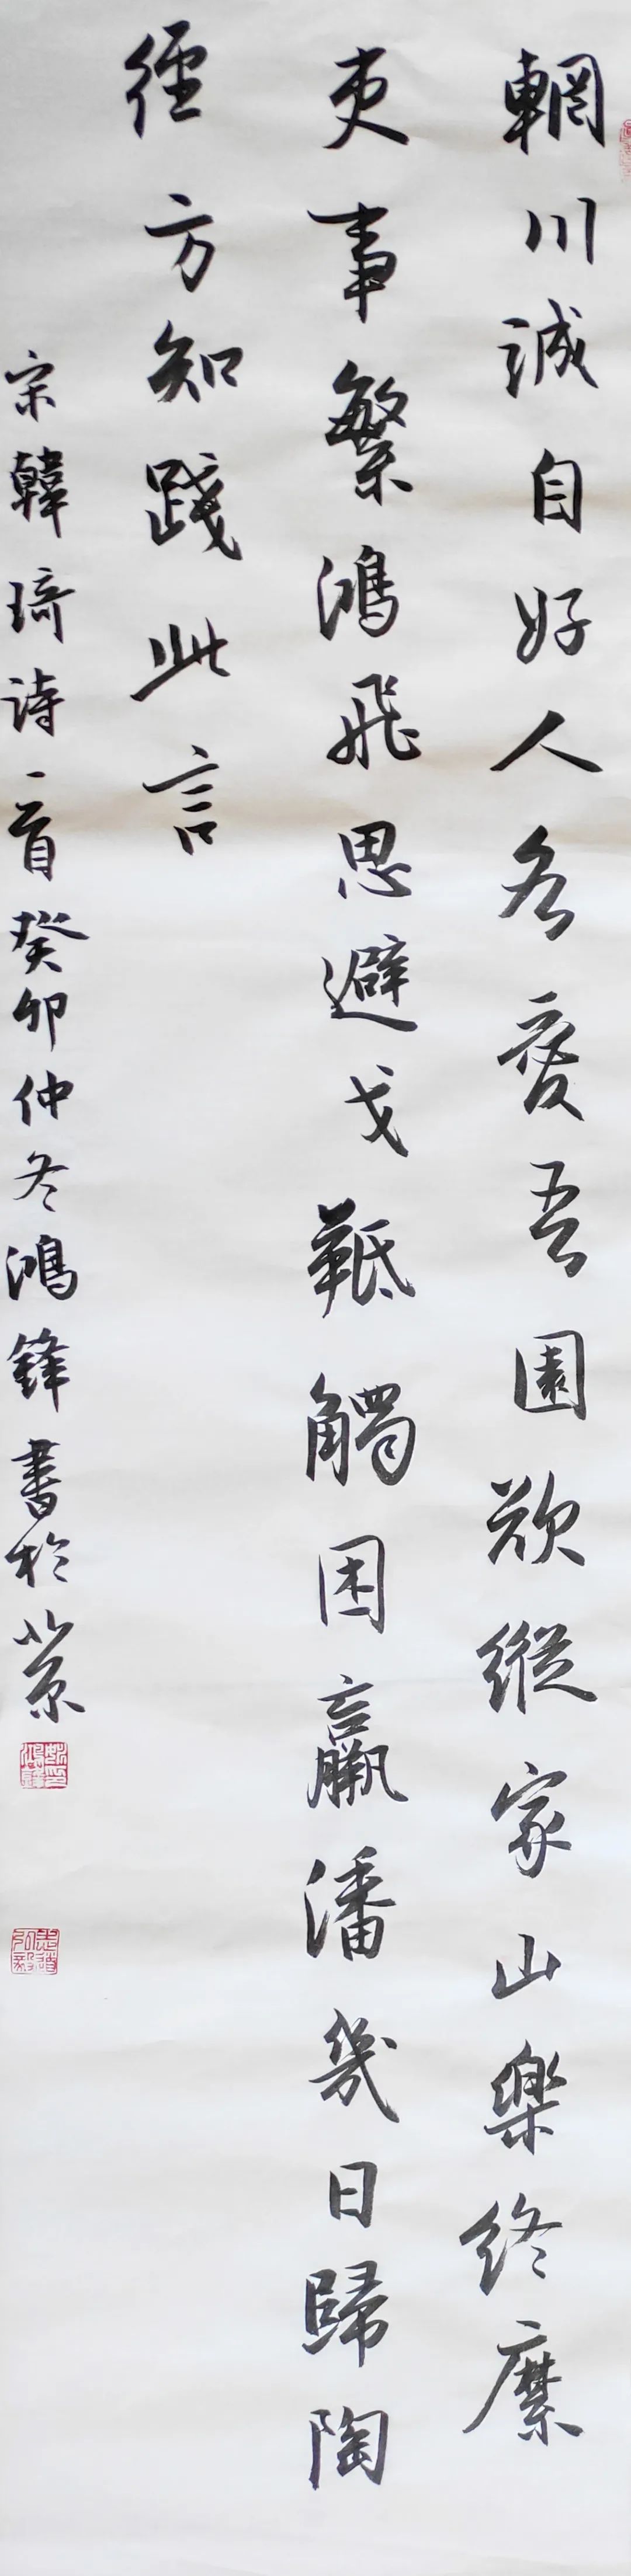 輞川誠自好人各爱吾園欲縱家山樂終縻
吏事繁鴻飛思避戈羝觸困羸潘幾日歸陶
徑方知踐此言
宋韓琦詩一首癸卯仲冬鴻鋒書於北京